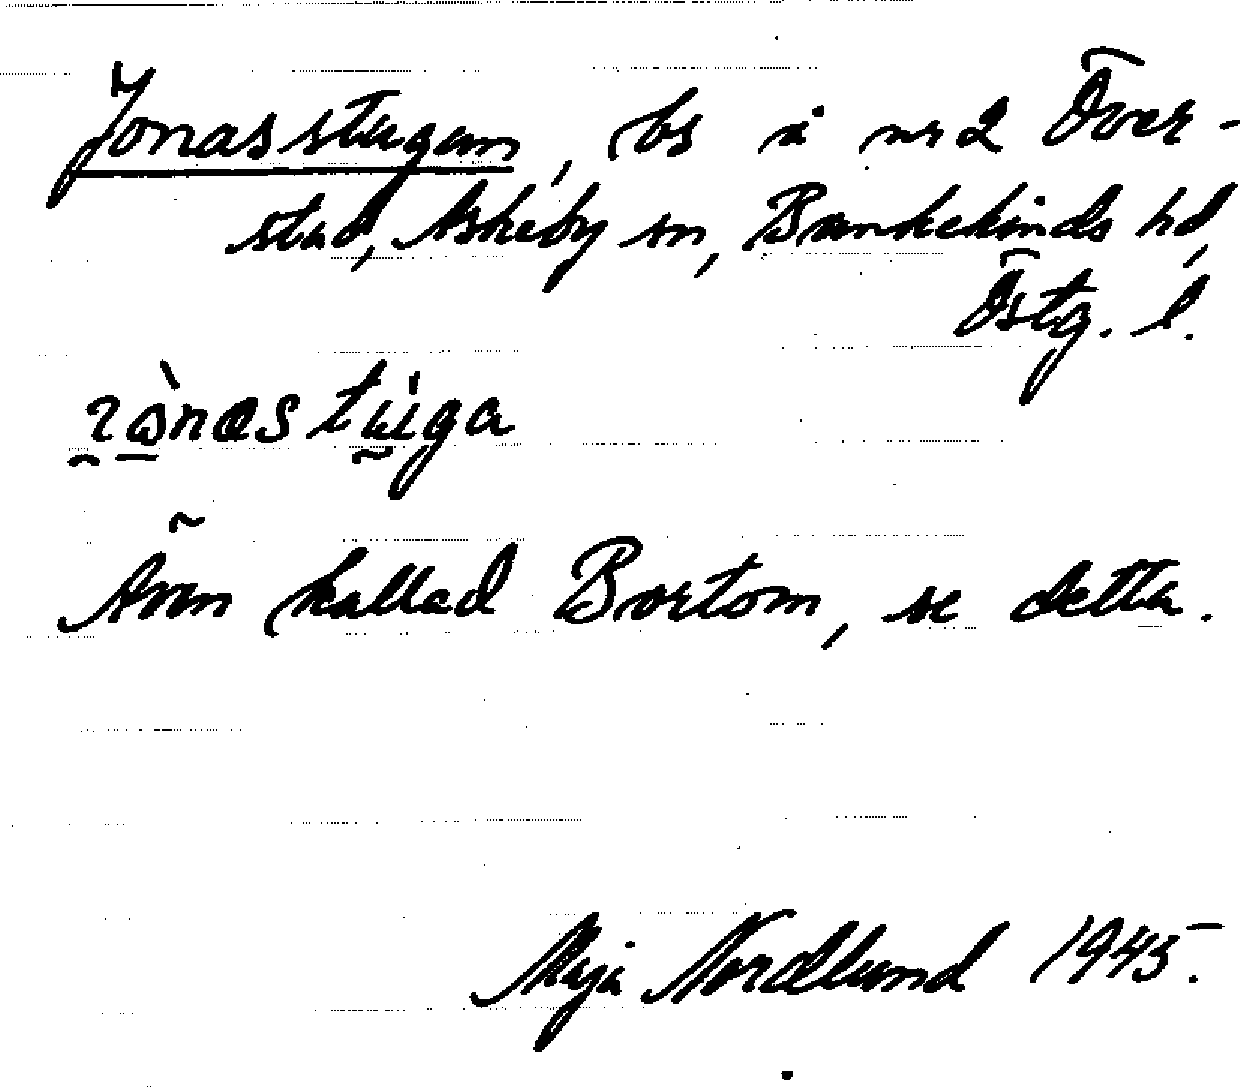 Jonasstugan, bs å nr 2 Över-
stad, Askeby sn, Bankekinds hd,
Östg. l.
Även kallad Bortom, se detta.
Maja Nordlund 1945.